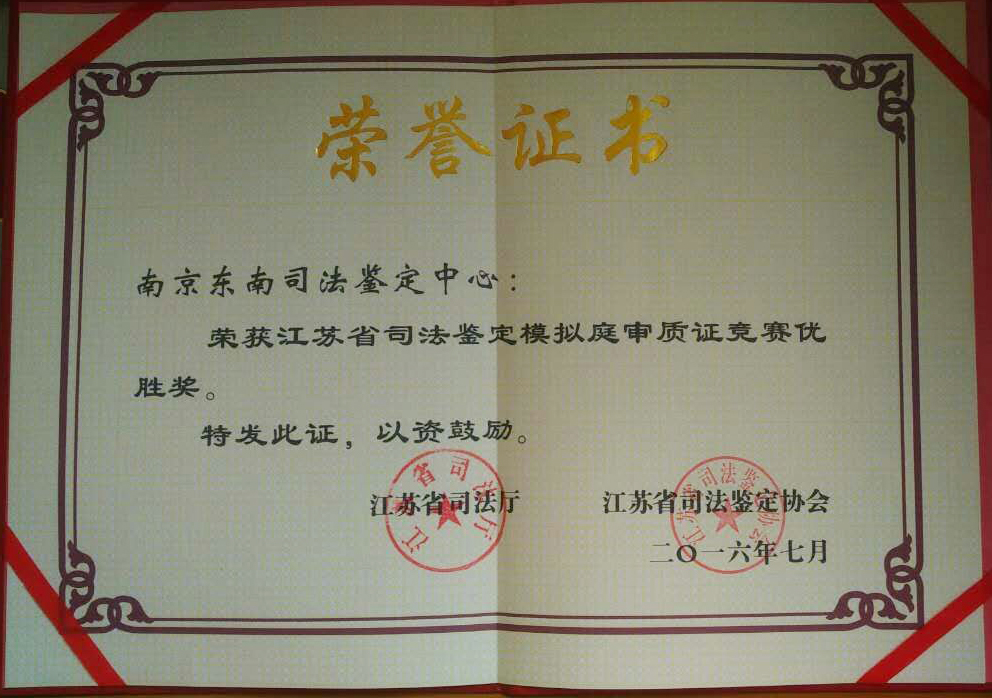 荣誉证书
南京东南司法鉴定中心：
荣获江苏省司法鉴定模拟庭审质证竞赛优
胜奖。
特发此证，以资鼓励。
江苏省司法厅 江苏省司法鉴定协会
二〇一六年七月
江苏省司法厅
江苏省司法鉴定协会